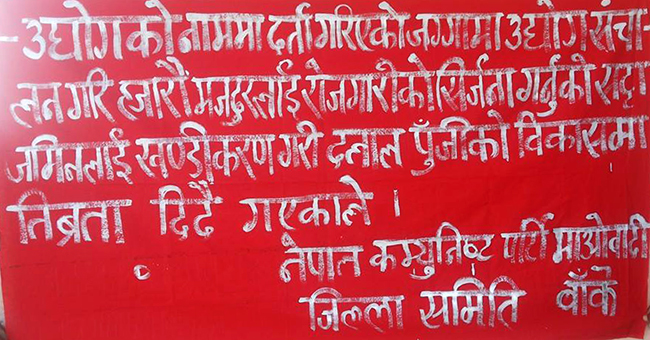 - उद्योगको नाममा दर्ता गरिएको जग्गामा उद्योग संचा-
लन गरि हजारौं मजदुरलाई रोजगारीको सिर्जना गर्नुको सट्टा
जमिनलाई खण्डीकरण गरी दलाल पुँजीको विकासमा
तिब्रता दिदैं गएकाले ।
नेपाल कम्युनिष्ट पार्टि माओवादी
जिल्ला समिति बाँके